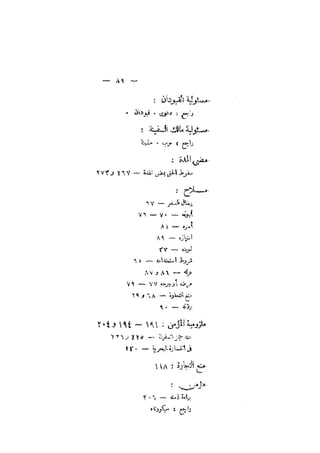 — ٨٩ —
مسئولية القبودان :
راجع : دعاوى · قبودان ·
مسئولية مالك السفينة :
راجع :
مضى المدة :
سقوط الحق بمضى المدة — ٢٦٧ و ٢٧٣
ملاح :
السفر — ٦٧
أجرته — ٧٠ — ٧٦
أسره — ٨٤
امتيازه — ٨٩
تعيينه — ٣٧
شروط استخدامه — ٦٥
عزله — ٨٦ و ٨٧
مرضه أو جرحه ٧٧ — ٧٩
منع التجارة — ٦٨ و ٦٩
— ٩٠
ملزومية المؤمن : ١٩١ — ١٩٤ و ٢٠٤
عند حجز السفينة — ٢٢٥ و ٢٢٦
فى الخسارة البحرية — ٢٤٠
منع التجارة : ١١٨
مؤمن :
براءة ذمته — ٢٠٦
راجع : سيكورتاه